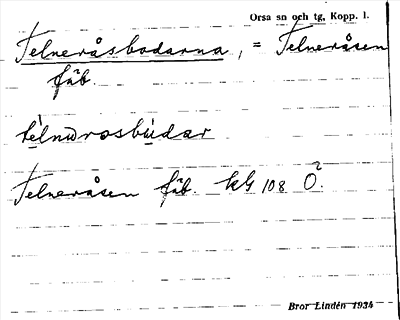 Orsa sn och tg, Kopp. l.
Telneråsbodarna, = Telneråsen
fäb.
tèlnωrosbùdar
Telneråsen fäb. kbl 108 Ö?
Bror Lindén 1934